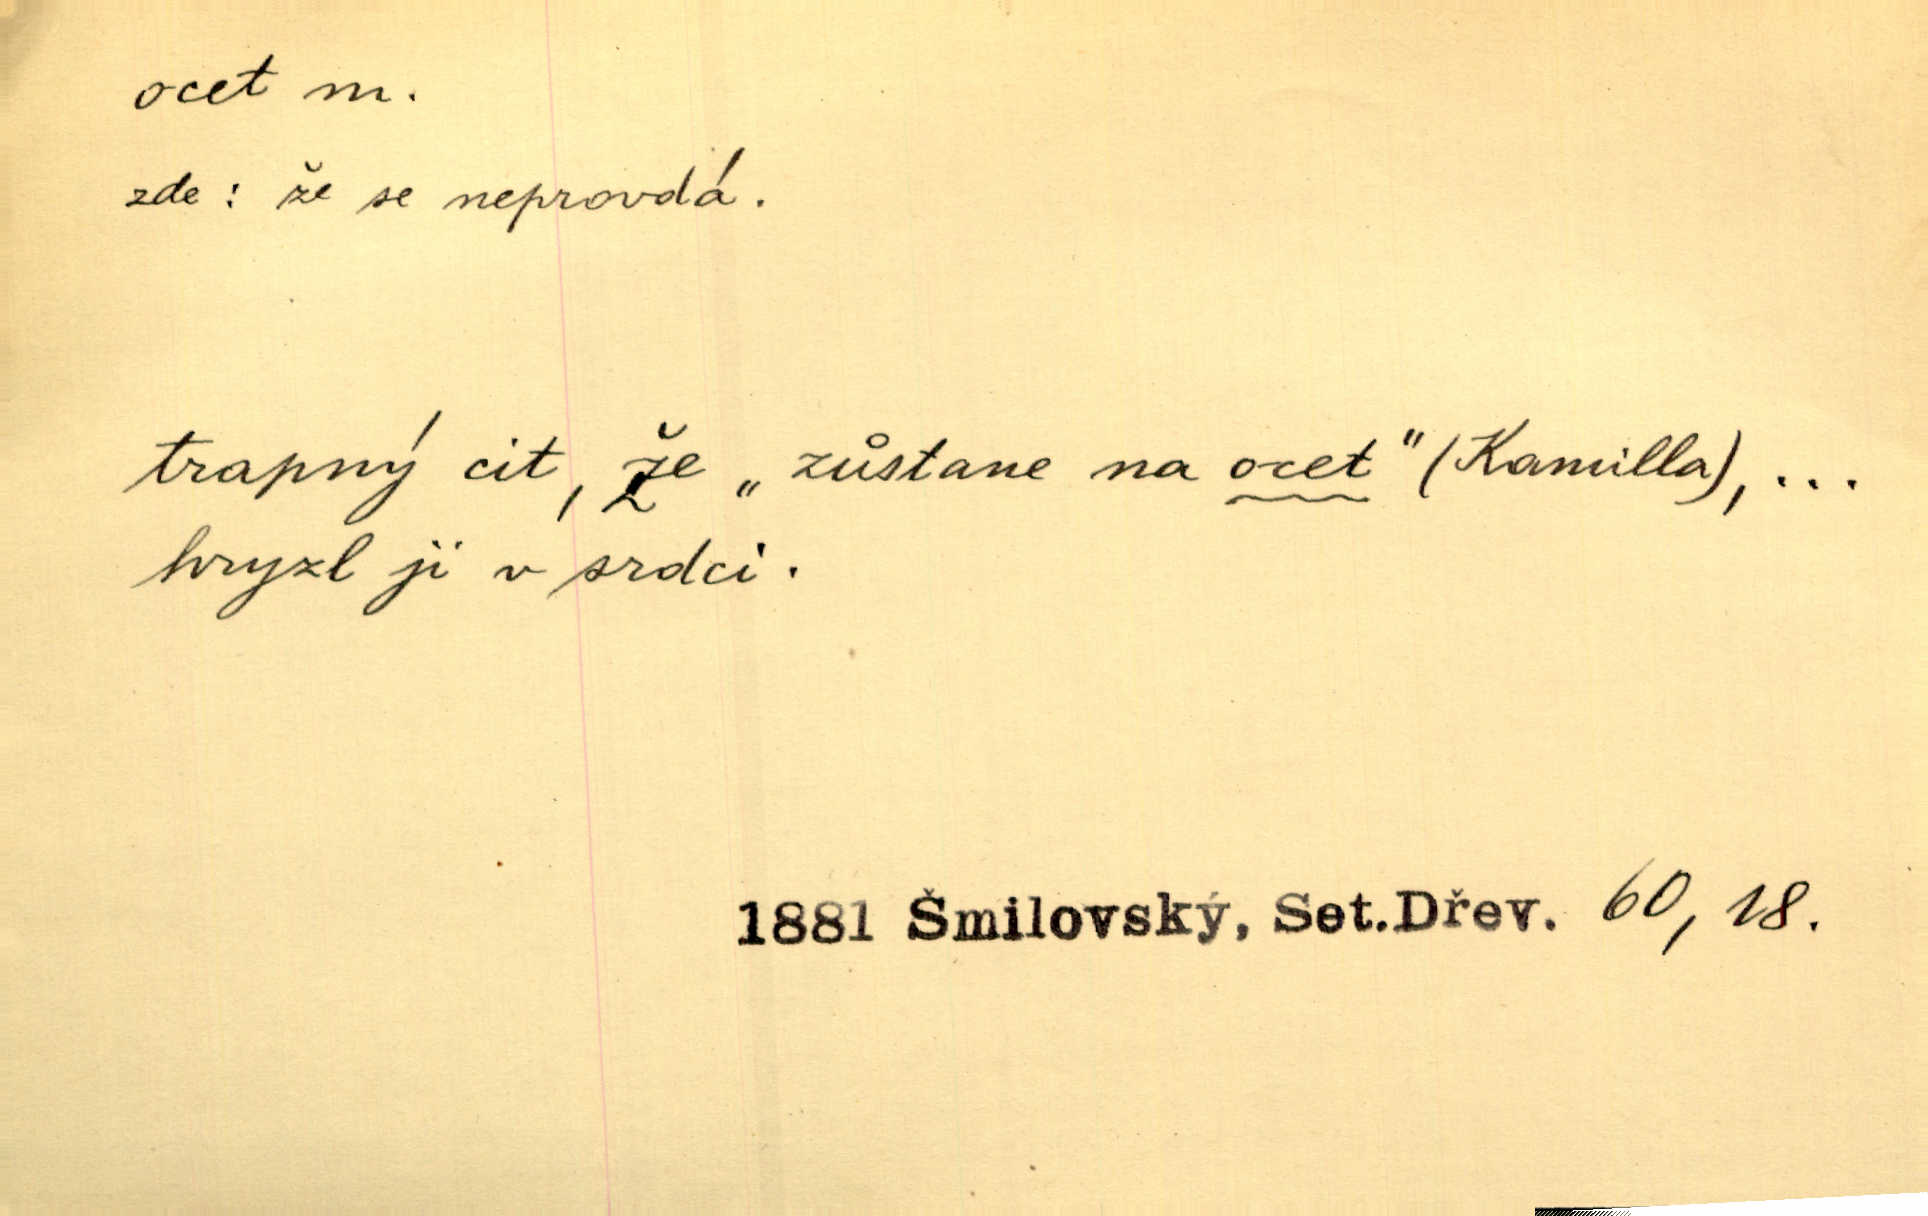 ocet m.
zde: že se neprovdá.
trapný cit, že „zůstane na ocet" (Kamilla), ...
hryzl ji v srdci.
1881 Šmilovský, Set.Dřev. 60, 18.